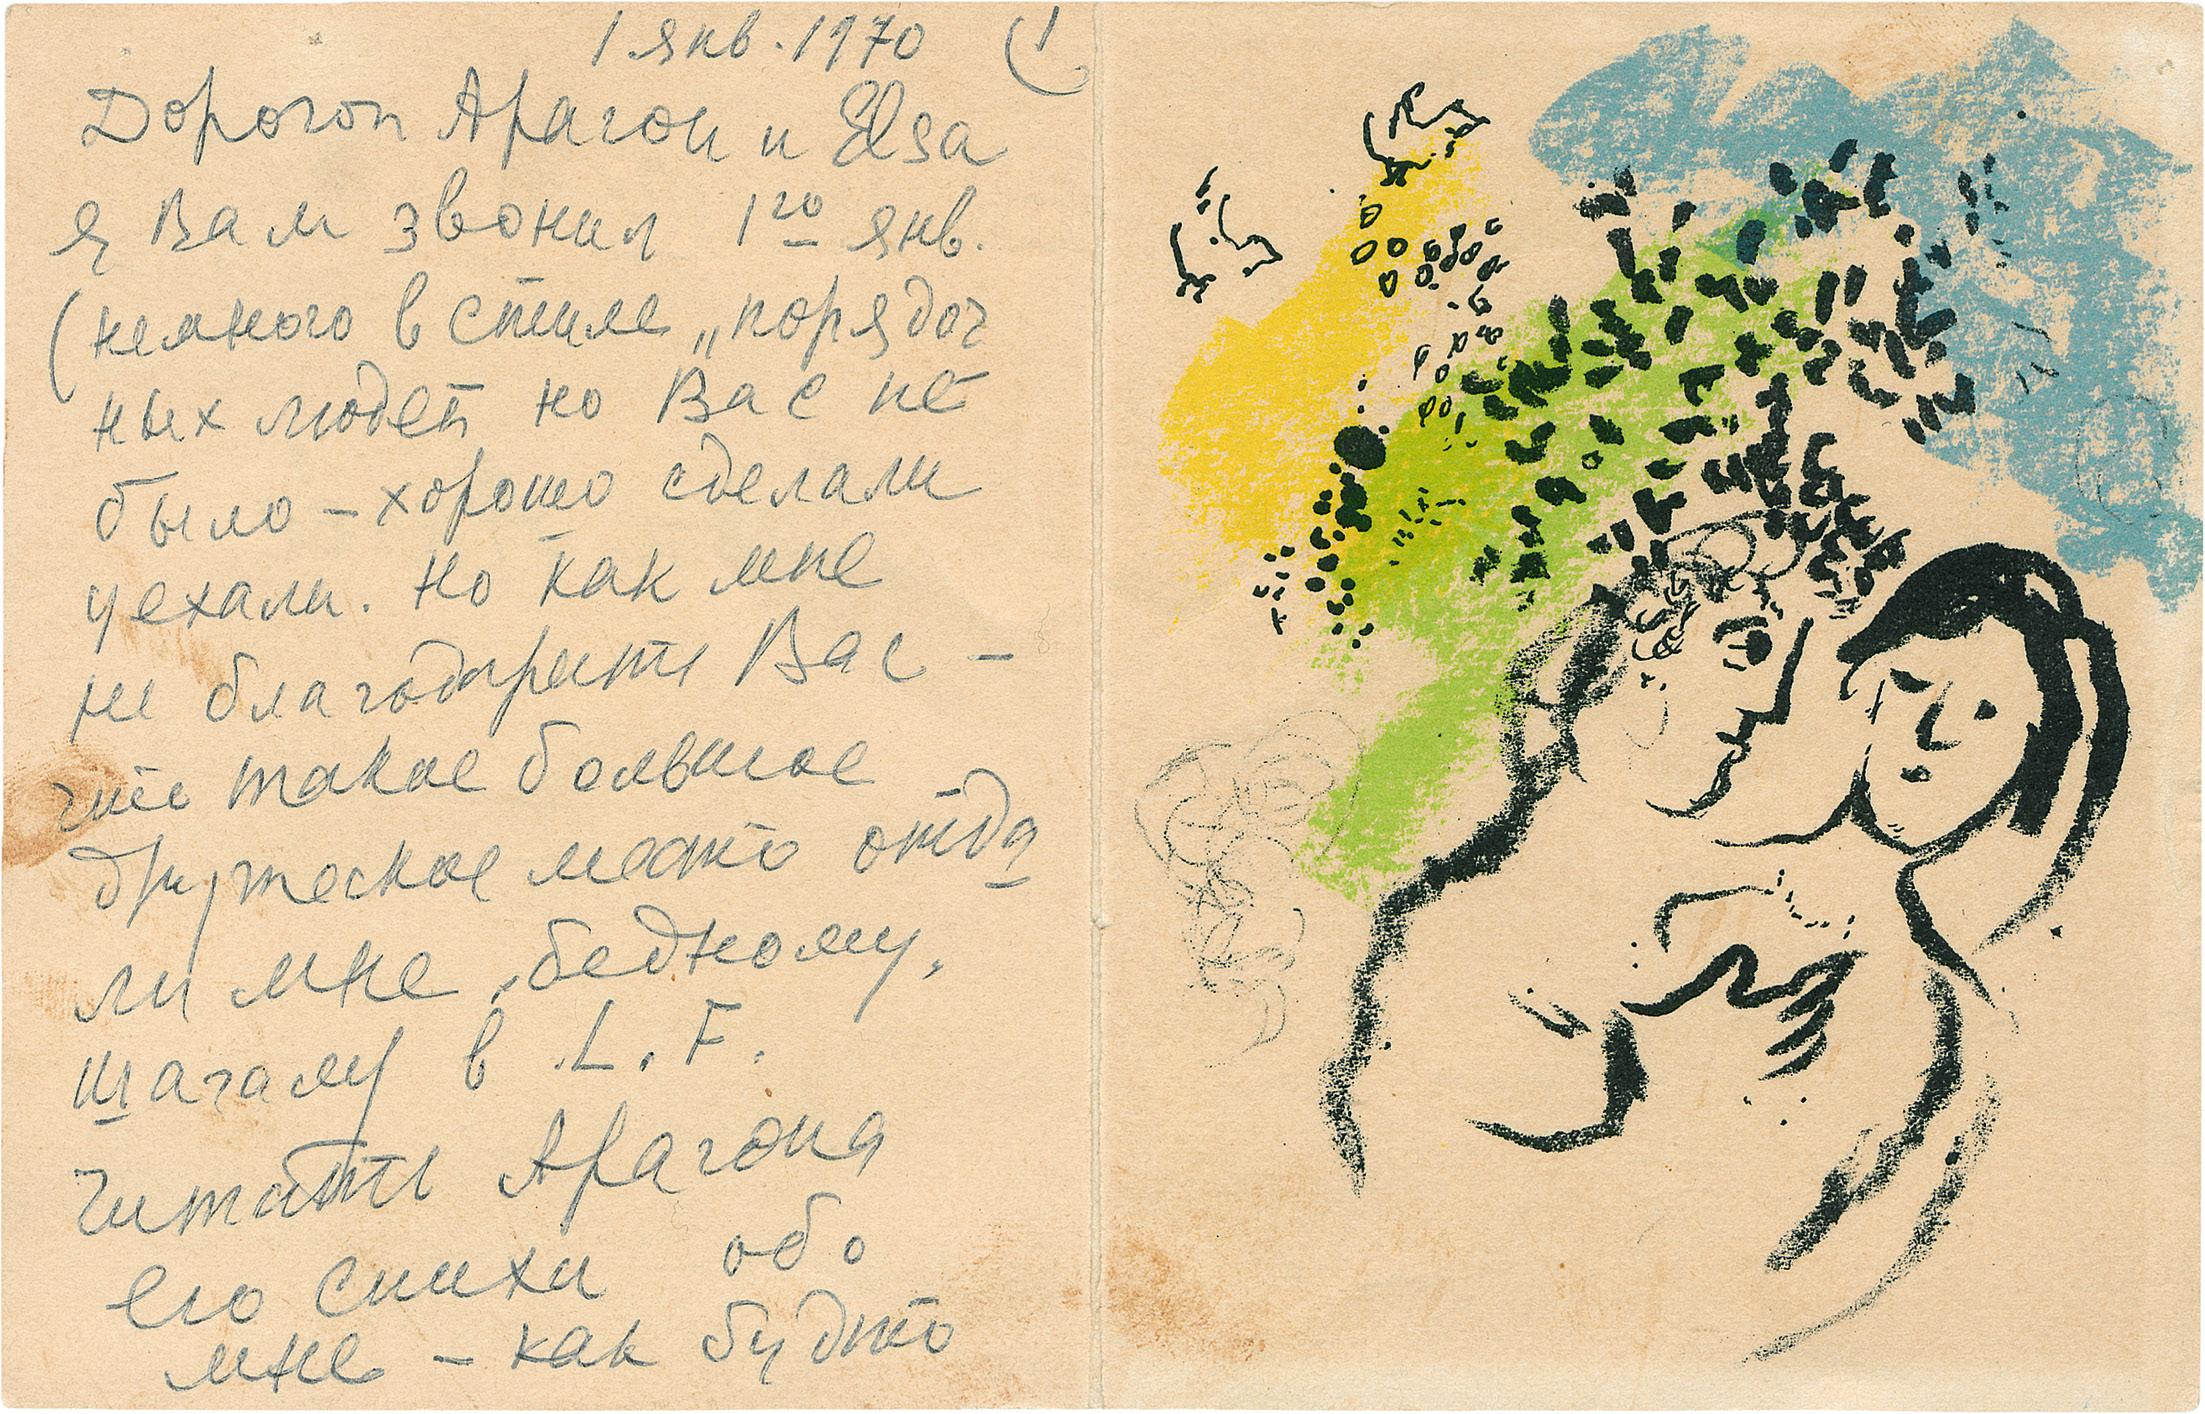 1 янв. 1970 (1
Дорогой Арагон и Elsa
я Вам звонил 1го янв.
(немного в стиле „порядоч
ных людей но Вас не
было – хорошо сделали
уехали. Но как мне
не благодарить Вас –
что такое большое
дружеское место отда
ли мне „бедному„
Шагалу в L. F.
Читать Арагона
его стихи обо
мне – как будто